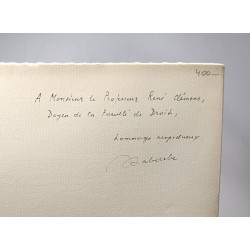 400.—
A Monsieur le Professeur René Clémens,
Doyen de la Faculté de Droit,
hommage respectueux